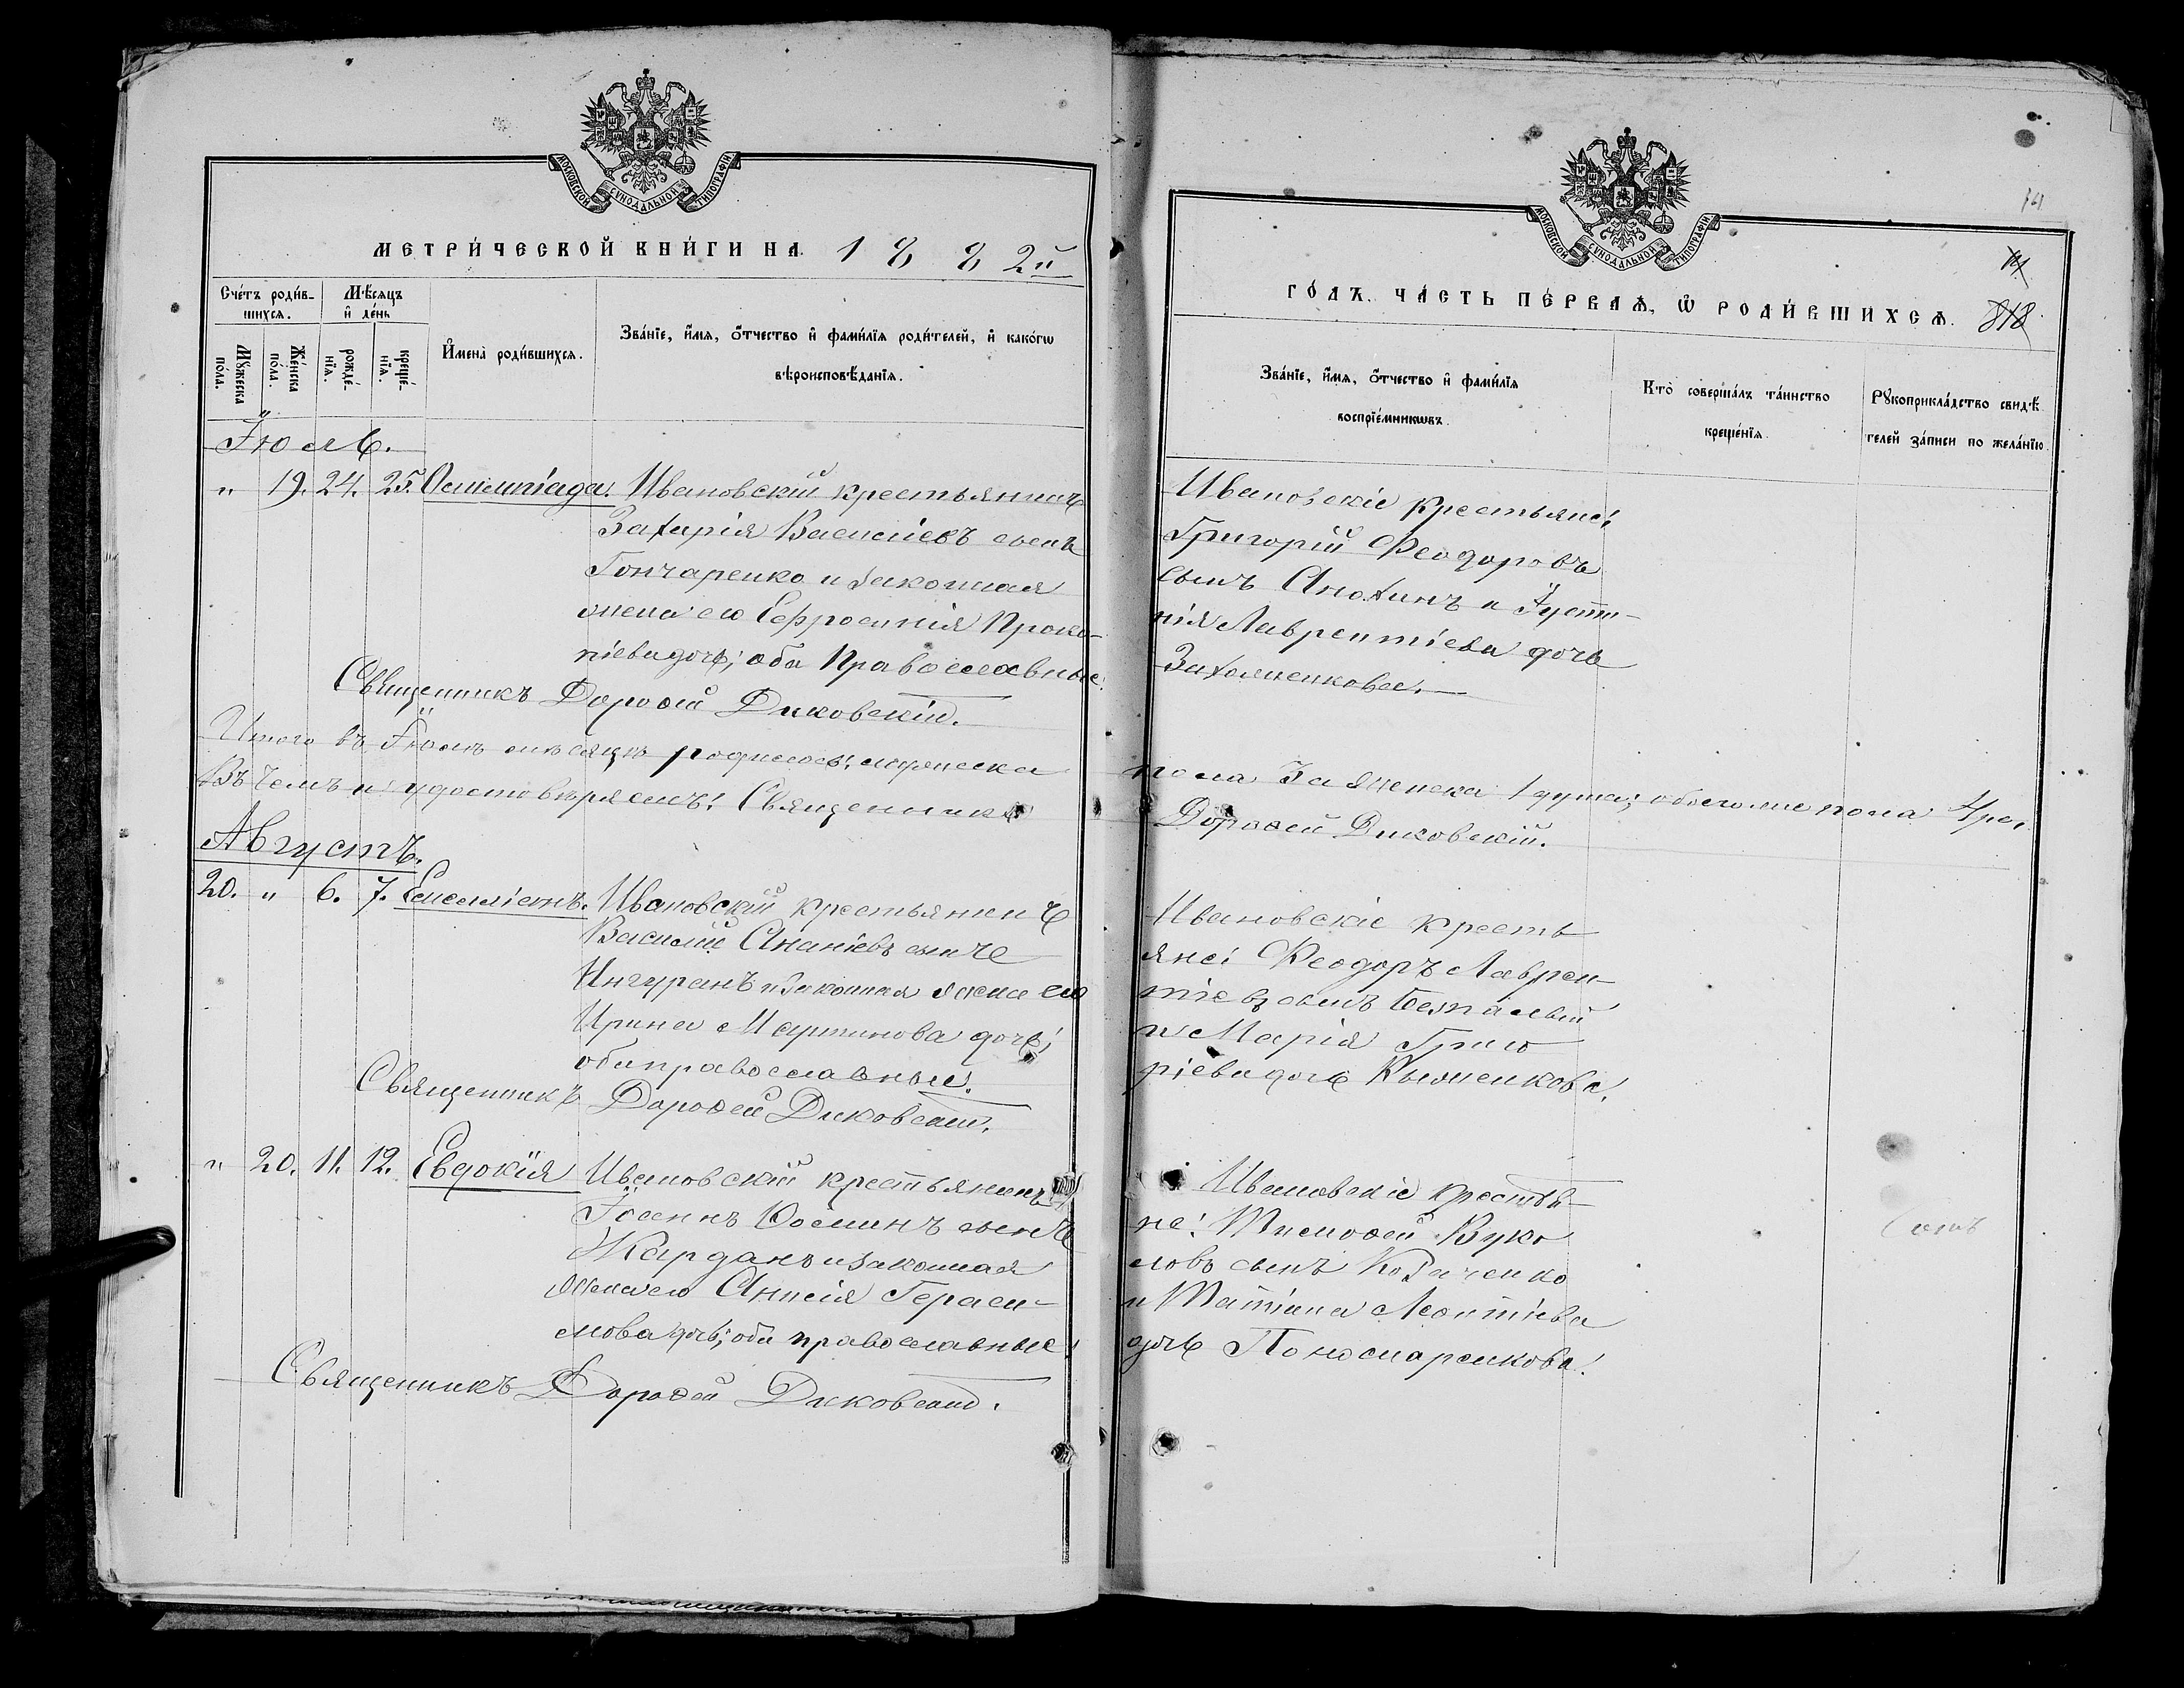 МОСКОВСКОЙ СѴНОДАЛЬНОЙ ТИПОГРАФІИ
МЕТРИ́ЧЕСКОЙ КНИ́ГИ НА 1882й
Сче́тъ роди́в-
шихсѧ.
Мѣ́сѧцъ
и҆ де́нь
Мꙋ́жеска
по́ла.
Же́нска
по́ла.
рожде́-
нїѧ.
креще́-
нїѧ.
И҆мена̀ роди́вшихсѧ.
Зва́нїе, и҆́мѧ, ѻ҆́тчество и҆ фами́лїѧ роди́телей, и҆ како́гѡ
вѣроисповѣ́данїѧ.
Іюль.
" 19. 24. 25. Олимпіада. Ивановскій крестьянинъ
Захарія Василіевъ сынъ
Гончаренко и законная
жена его Ефросинія Проко-
піева дочь; оба Православные.
Священникъ Дороѳей Диковскій.
Итого въ Іюлѣ мѣсяцѣ родилось: мужеска
Въ чемъ и удостовѣряемъ: Священникъ
Августъ.
20. " 6. 7. Емеліанъ. Ивановскій крестьянинъ
Василій Ананіевъ сынъ
Нигуранъ и законная жена его
Ирина Мартинова дочь;
оба православные.
Священникъ Дороѳей Диковскій.
" 20. 11. 12. Евдокія Ивановскій крестьянинъ
сынъ
Жарданъ и законная
жена его Анисія Гераси-
мова дочь; оба православные.
Священникъ Дороѳей Диковскій.
МОСКОВСКОЙ СѴНОДАЛЬНОЙ ТИПОГРАФІИ
818
ГО́ДЪ. ЧА́СТЬ ПЕ́РВАѦ, Ѡ҆ РОДИ́ВШИХСѦ.
Зва́нїе, и҆́мѧ, ѻ҆́тчество и҆ фами́лїѧ
воспрїе́мникѡвъ.
Кто̀ соверша́лъ та́инство
креще́нїѧ.
Рꙋкоприкла́дство свидѣ́-
телей за́писи по жела́нїю.
Ивановскіе крестьяне:
Григорій Феодоровъ
сынъ Анохинъ и Іусти-
нія Лаврентіева дочь
пола 3 а женска 1 душа; обоего же пола 4ре.
Дороѳей Диковскій.
Ивановскіе кресть-
яне: Феодоръ Лаврен-
тіевъ сынъ Безпалый
и Марія Григо-
ріева дочь Клименкова.
Ивановскіе крестья-
не: Тимоѳей Вуко-
ловъ сынъ Козаченко
и Татіана Леонтіева
дочь Пономаренкова.